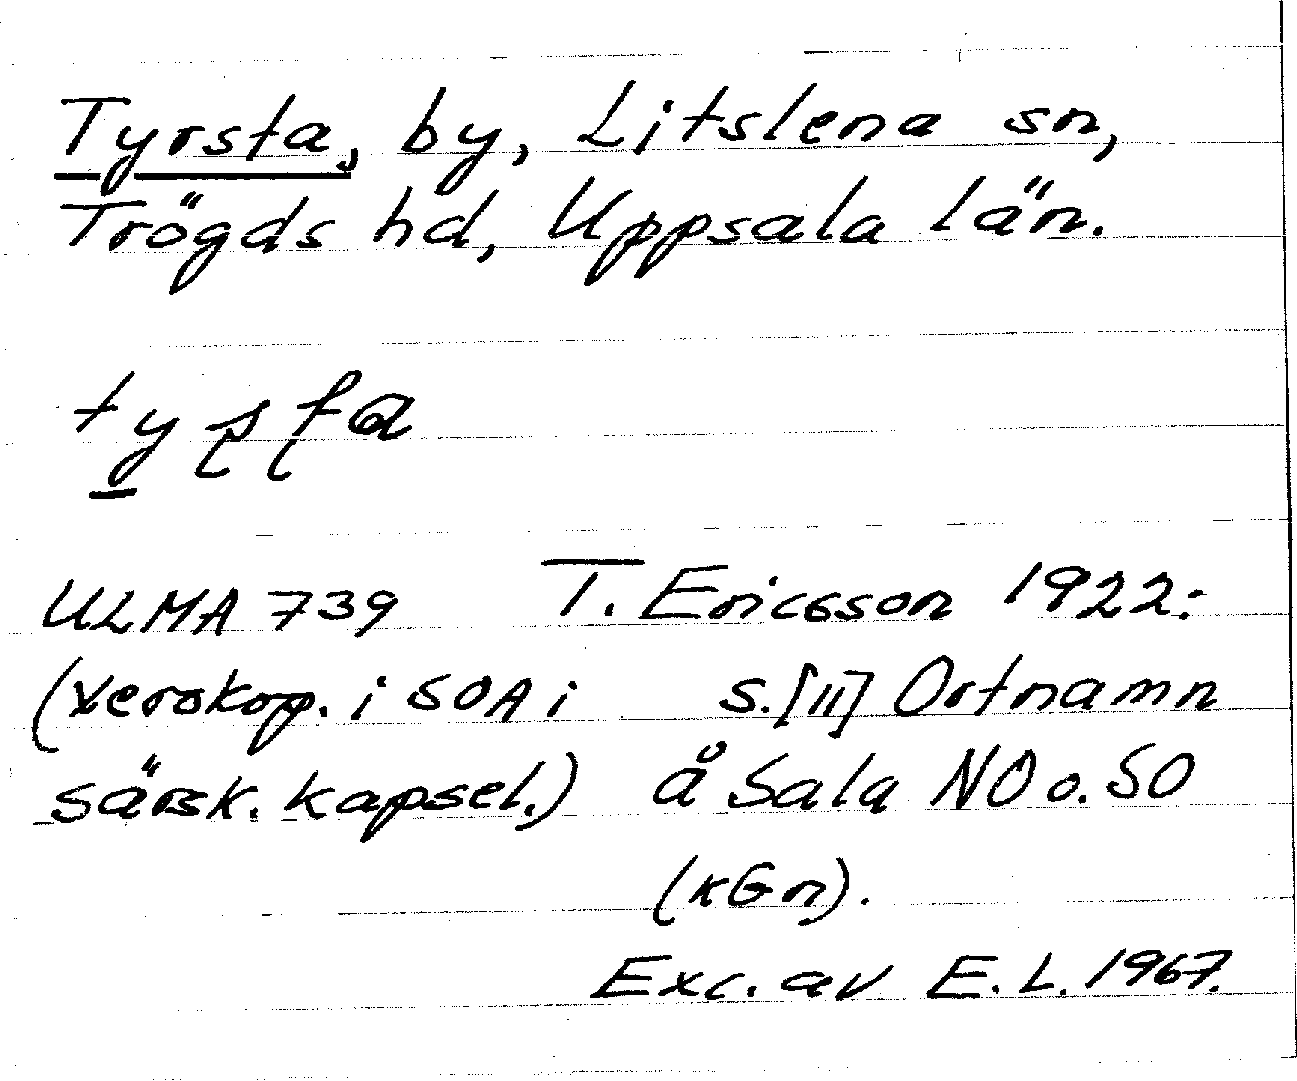 Tyrsta, by, Litslena sn,
Trögds hd, Uppsala län.
ty̲ʂʈa
ULMA 739 T. Ericsson 1922:
(xerokop. i SOA i s.[11] Ortnamn
särsk. kapsel.) å Sala NO o. SO
(KGn).
Exc. av E.L. 1967.